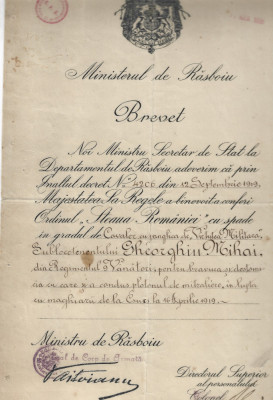 Ministerul de Răsboiu
Brevet
Noi Ministru Secretar de Stat la
Departamentul de Răsboiu adeverim că prin
Înaltul decret No 4206 din 12 Septembrie 1919
Majestatea Sa Regele a binevoit a conferi
Ordinul „Steaua României" cu spade
în gradul de Cavaler cu panglica de „Virtutea Militară"
Sublocotenentului Gheorghiu Mihai,
din Regimentul 9 Vânători, pentru bravura și destoinicia
cu care și-a condus plutonul de mitraliere, în luptele
cu maghiarii de la 16 Aprilie 1919.-
Ministru de Răsboiu
General de Corp de Armată
Directorul Superior
al personalului
Colonel